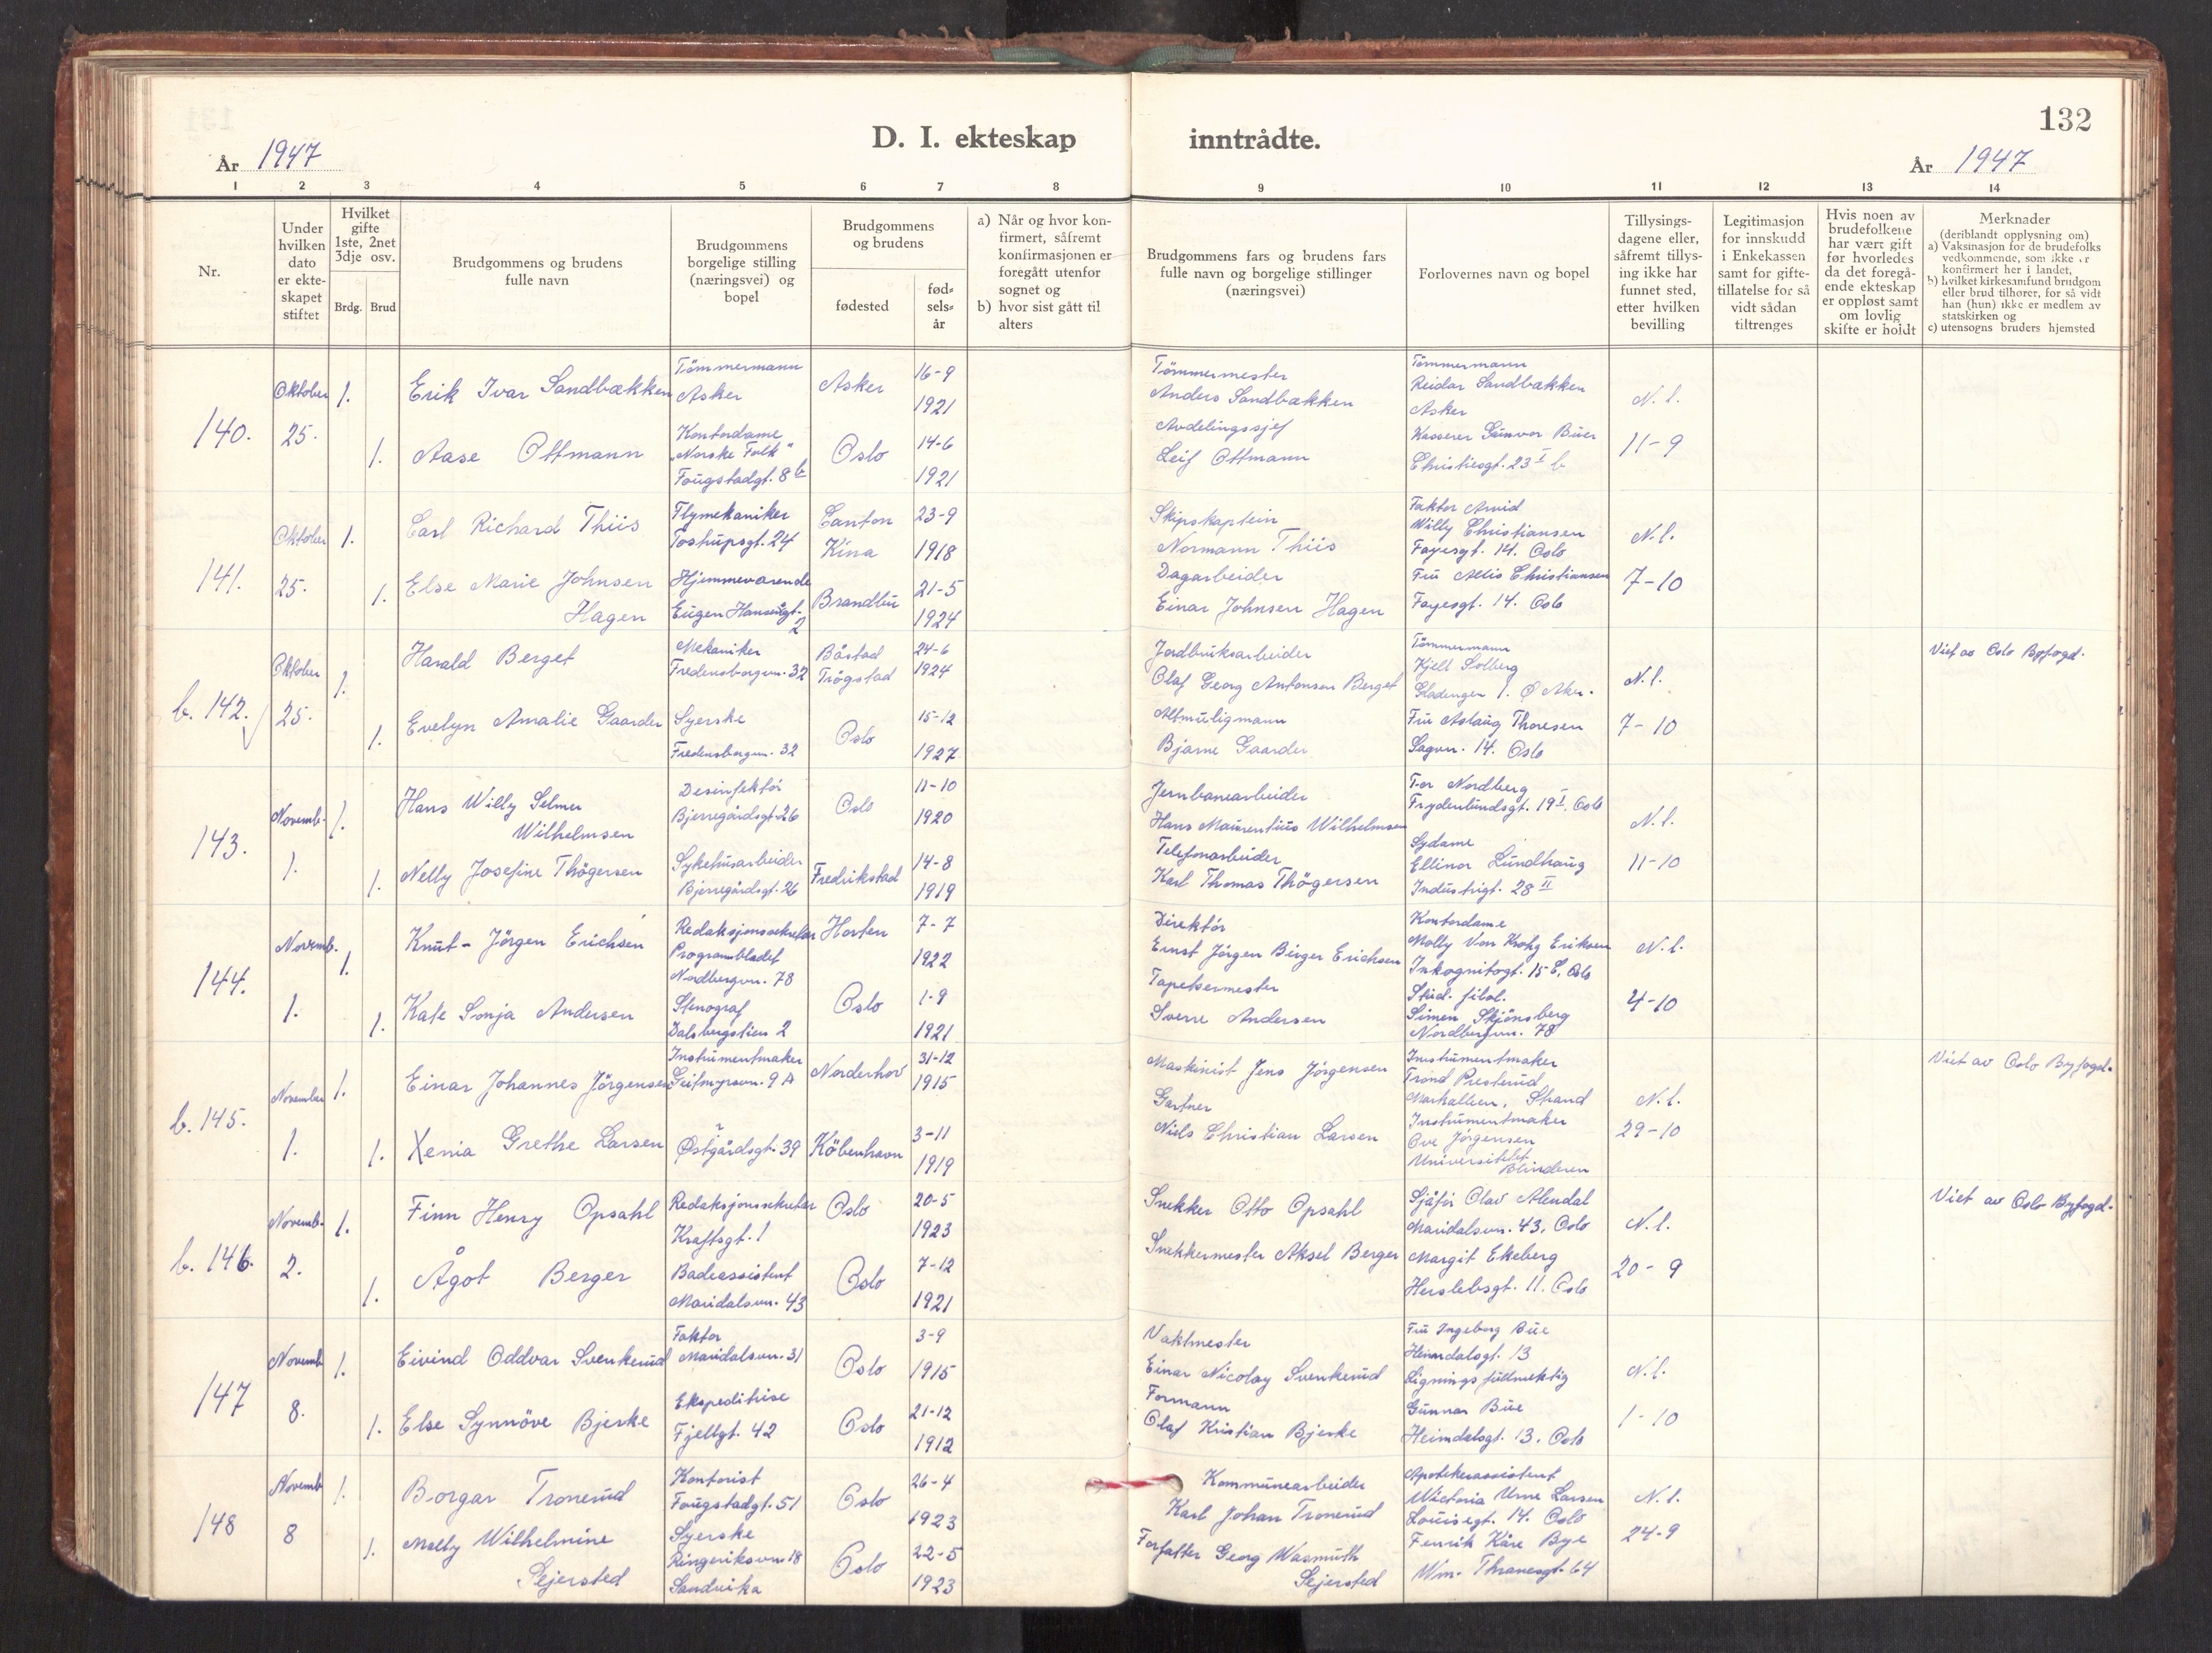 132
D. I. ekteskap inntrådte.
År 1947
År 1947
1 2 3 4 5 6 7 8 9 10 11 12 13 14
Nr.
Under
hvilken
dato
er ekte-
skapet
stiftet
Hvilket
gifte
1ste, 2net
3dje osv.
Brdg. Brud
Brudgommens og brudens
fulle navn
Brudgommens
borgelige stilling
(næringsvei) og
bopel
Brudgommens
og brudens
fødested
fød-
sels-
år
a) Når og hvor kon-
firmert, såfremt
konfirmasjonen er
foregått utenfor
sognet og
b) hvor sist gått til
alters
Brudgommens fars og brudens fars
fulle navn og borgelige stillinger
(næringsvei)
Forlovernes navn og bopel
Tillysings-
dagene eller,
såfremt tillys-
ing ikke har
funnet sted,
etter hvilken
bevilling
Legitimasjon
for innskudd
i Enkekassen
samt for gifte-
tillatelse for så
vidt sådan
tiltrenges
Hvis noen av
brudefolkene
har vært gift
før hvorledes
da det foregå-
ende ekteskap
er oppløst samt
om lovlig
skifte er holdt
Merknader
(deriblandt opplysning om)
a) Vaksinasjon for de brudefolks
vedkommende, som ikke er
konfirmert her i landet,
b) hvilket kirkesamfund brudgom
eller brud tilhører, for så vidt
han (hun) ikke er medlem av
statskirken og
c) utensogns bruders hjemsted
140.
Oktober
25.
1.
Erik Ivar Sandbækken
Tømmermann
Asker
Asker
16-9
1921
Tømmermester
Anders Sandbækken
Tømmermann
Reidar Sandbækken
Asker
N.l.
1.
Aase Ottmann
Kontordame
„Norske Folk"
Fougstadgt. 8 b
Oslo
14-6
1921
Avdelingssjef
Leif Ottmann
Kasserer Gunvor Buer
Christiesgt. 23 I b
11-9
141.
Oktober
25.
1.
Carl Richard Thiis
Flymekaniker
Tostrupsgt. 24
Canton
Kina
23-9
1918
Skipskaptein
Normann Thiis
Faktor Arvid
Willy Christiansen
Fayesgt. 14. Oslo
N.l.
1.
Else Marie Johnsen
Hagen
Hjemmeværende
Eugen Hansensgt.
2
Brandbu
21-5
1924
Dagarbeider
Einar Johnsen Hagen
Fru Allis Christiansen
Fayesgt. 14. Oslo
7-10
b. 142.
Oktober
25.
1.
Harald Berget
Mekaniker
Fredensborgvn. 32
Båstad
Trøgstad
24-6
1924
Jordbruksarbeider
Olaf Georg Antonsen Berget
Tømmermann
Kjell Solberg
Gladengen 1. Ø Aker.
N.l.
Viet av Oslo Byfogd.
1.
Evelyn Amalie Gaarder
Syerske
Fredensborgvn. 32
Oslo
15-12
1927
Altmuligmann
Bjarne Gaarder
Fru Aslaug Thoresen
Sagvn. 14. Oslo
7-10
143.
Novemb.
1.
1.
Hans Willy Selmer
Wilhelmsen
Desinfektør
Bjerregårdsgt. 26
Oslo
11-10
1920
Jernbanearbeider
Hans Maurentius Wilhelmsen
Tor Nordberg
Frydenlundsgt. 19 I. Oslo
N.l.
1.
Nelly Josefine Thøgersen
Sykehusarbeider
Bjerregårdsgt. 26
Fredrikstad
14-8
1919
Telefonarbeider
Karl Thomas Thøgersen
Sydame
Ellinor Lundhaug
Industrigt. 28 II
11-10
144.
Novemb.
1.
1.
Knut-Jørgen Erichsen
Redaksjonssekretær
Programbladet
Nordbergvn. 78
Horten
7-7
1922
Direktør
Ernst Jørgen Birger Erichsen
Kontordame
Molly Von Krohg Eriksen
Inkognitogt. 15 C. Oslo
N.l.
1.
Kate Sonja Andersen
Stenograf
Dalsbergstien 2
Oslo
1-9
1921
Tapetsermester
Sverre Andersen
Stud. filol.
Simen Skjønsberg
Nordbergvn. 78
4-10
b. 145.
November
1.
1.
Einar Johannes Jørgensen
Instrumentmaker
Geitmyrsvn. 9 A
Norderhov
31-12
1915
Maskinist Jens Jørgensen
Instrumentmaker
Trond Presterud
Markalleen, Strand
N.l.
Viet av Oslo Byfogd.
1.
Xenia Grethe Larsen
Østgårdsgt. 39
København
3-11
1919
Gartner
Niels Christian Larsen
Instrumentmaker
Ove Jørgensen
Universitetet
Blindern
29-10
b. 146.
Novemb.
2.
1.
Finn Henry Opsahl
Redaksjonssekretær
Kraftsgt. 1
Oslo
20-5
1923
Snekker Otto Opsahl
Sjåfør Olav Alendal
Maridalsvn. 43, Oslo
N.l.
Viet av Oslo Byfogd.
1.
Ågot Berger
Badeassistent
Maridalsvn. 43
Oslo
7-12
1921
Snekkermester Aksel Berger
Margit Ekeberg
Herslebsgt. 11. Oslo
20-9
147
Novemb
8.
1.
Eivind Oddvar Svenkerud
Faktor
Maridalsvn. 31
Oslo
3-9
1915
Vaktmester
Einar Nicolay Svenkerud
Fru Ingeborg Bue
Heimdalsgt. 13
N.l.
1.
Else Synnöve Bjerke
Ekspeditrise
Fjellgt. 42
Oslo
21-12
1912
Formann
Olaf Kristian Bjerke
Ligningsfullmektig
Gunnar Bue
Heimdalsgt. 13. Oslo
1-10
148
Novemb
8
1.
Borgar Tronerud
Kontorist
Fougstadgt. 51
Oslo
26-4
1923
Kommunearbeider
Karl Johan Tronerud
Apotekerassistent
Wictoria Urne Larsen
Louisesgt. 14. Oslo
N.l.
1.
Molly Wilhelmine
Sejersted
Syerske
Ringeriksvn 18
Sandvika
Oslo
22-5
1923
Forfatter Georg Wasmuth
Sejersted
Fenrik Kåre Bye
Wm. Thranesgt. 64
24-9